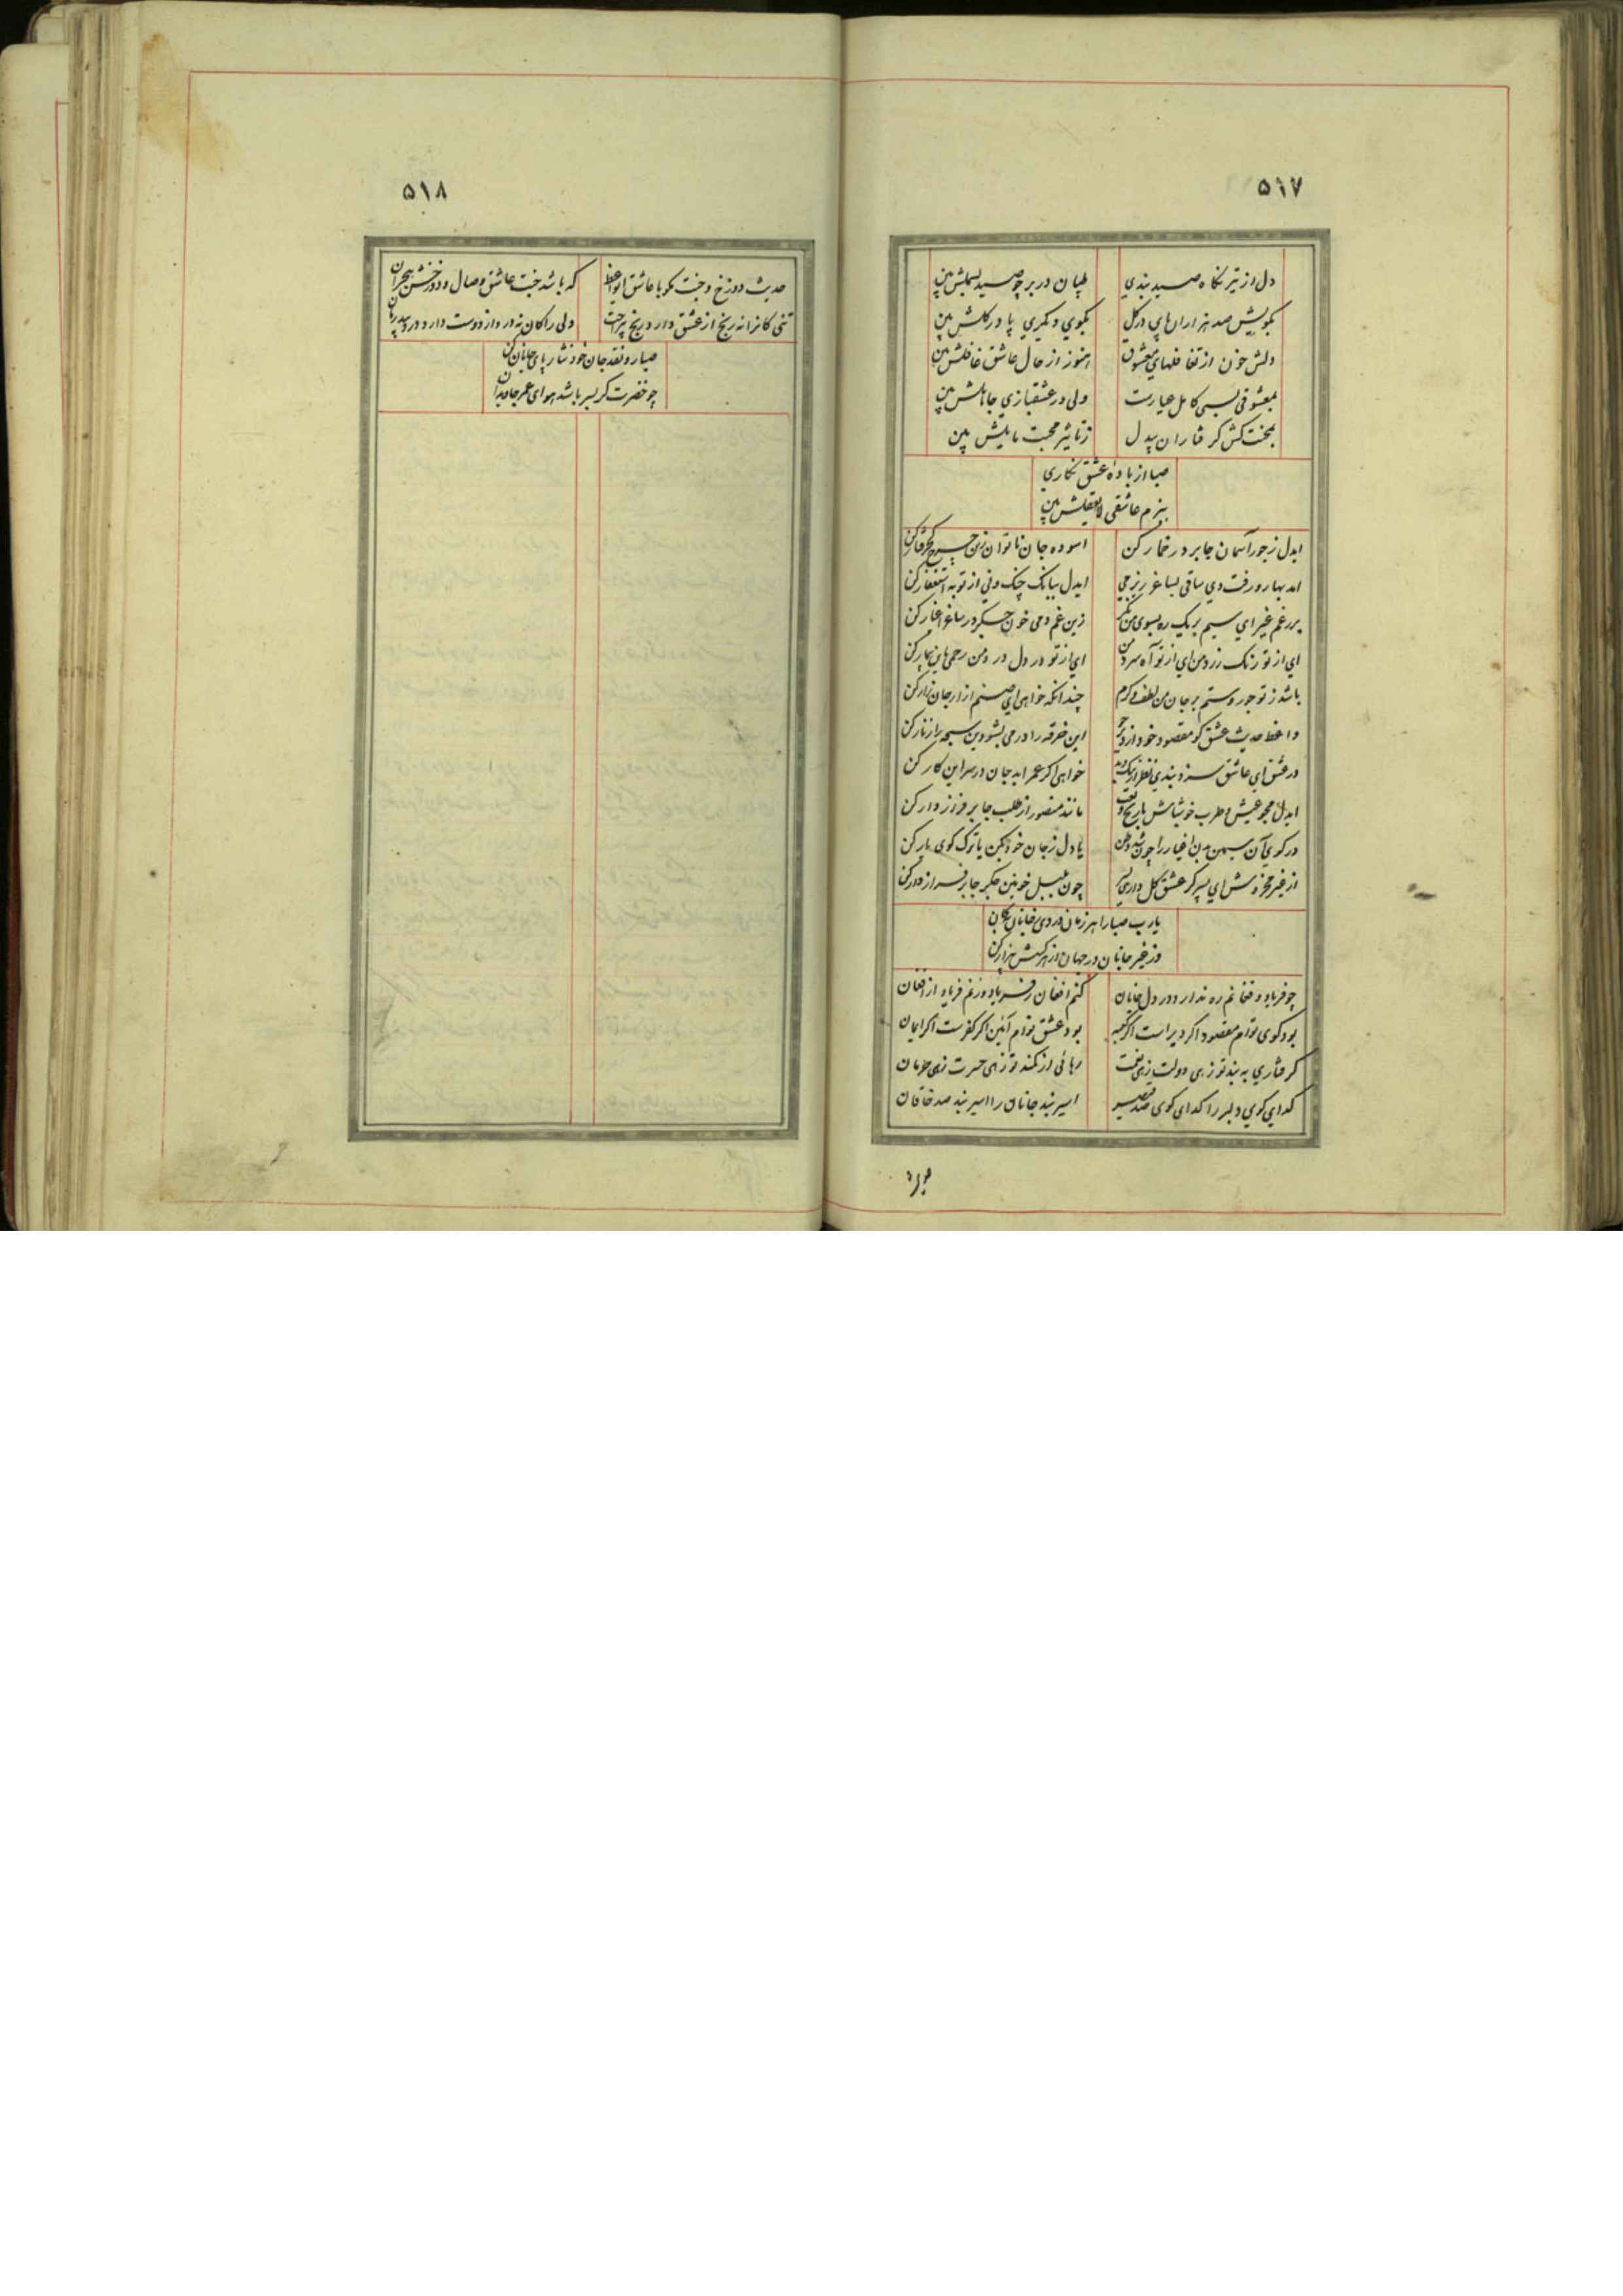 ۵۱۷
دل از تیر نگاه صید بندی طپان در بر چو صید بسملش بین
بکویش صد هزاران پای در گل بکوی دیگری پا در گلش بین
دلش خون از تغافلهای معشوق هنوز از حال عاشق غافلش بین
بمعشوقی بسی کامل عیارست ولی در عشقبازی جاهلش بین
بمحنت کش گرفتاران بیدل ز تاثیر محبت مایلش بین
صبا از باده عشق نگاری
ببزم عاشقی لایعقلش بین
ایدل ز جور آسمان جا بر در خمار کن اسوده جان ناتوان زین چرخ کجرفتار کن
امد بهار و رفت دی ساقی بساغر ریز می ایدل ببانگ چنگ و نی از توبه استغفار کن
بر رغم غیر ای سیم بر یک ره بسوی من نگر زین غم دمی خون جگر در ساغر اغیار کن
ای از تو رنگ زرد من ای از تو آه سرد من ای از تو در دل درد من رحمی باین بیمار کن
باشد ز تو جور و ستم بر جان من لطف و کرم چندانکه خواهی ای صنم ازار جان زار کن
واعظ حدیث عشق گو مقصود خود از دیر جو این خرقه را در می بشو وین سبحه را زنار کن
در عشق ای عاشق سزد بندی نظر از نیک و بد خواهی اگر عمر ابد جان در سر این کار کن
ایدل مجو عیش و طرب خوشباش با رنج و تعب مانند منصور از طلب جا بر فراز دار کن
در کوی آن سیمین بدن اغیار را چون شد وطن یا دل ز جان خود بکن یا ترک کوی یار کن
از غیر مخروش ای پسر گر عشق گل داری بسر چون بلبل خونین جگر جا بر فراز دار کن
یا رب صبا را هر زمان در وی
وز غیر جانان در جهان از هر کسش بیزار کن
چو فریاد و فغانم ره ندارد در دل جانان کنم افغان ز فریاد و زنم فریاد از افغان
بود کوی توام مقصود اگر دیر است اگر کعبه بود عشق توام آئین اگر کفرست اگر ایمان
گرفتاری به بند تو زهی دولت زهی بخت رهائی از کمند تو زهی حسرت زهی حرمان
گدای کوی دلبر را گدای کوی صد قیصر اسیر بند جانان را اسیر بند صد خاقان
۵۱۸
حدیث دوزخ و جنت مگو با عاشق ایواعظ که باشد جنت عاشق وصال و دوزخش هجران
تنی کانرا نه رنج از عشق دارد رنج بیراحت ولی را کان نه درد از دوست دارد درد بیدرمان
صبا رو نقد جان خود نثار پای جانان کن
چو خضرت گر بسر باشد هوای عمر جاویدان